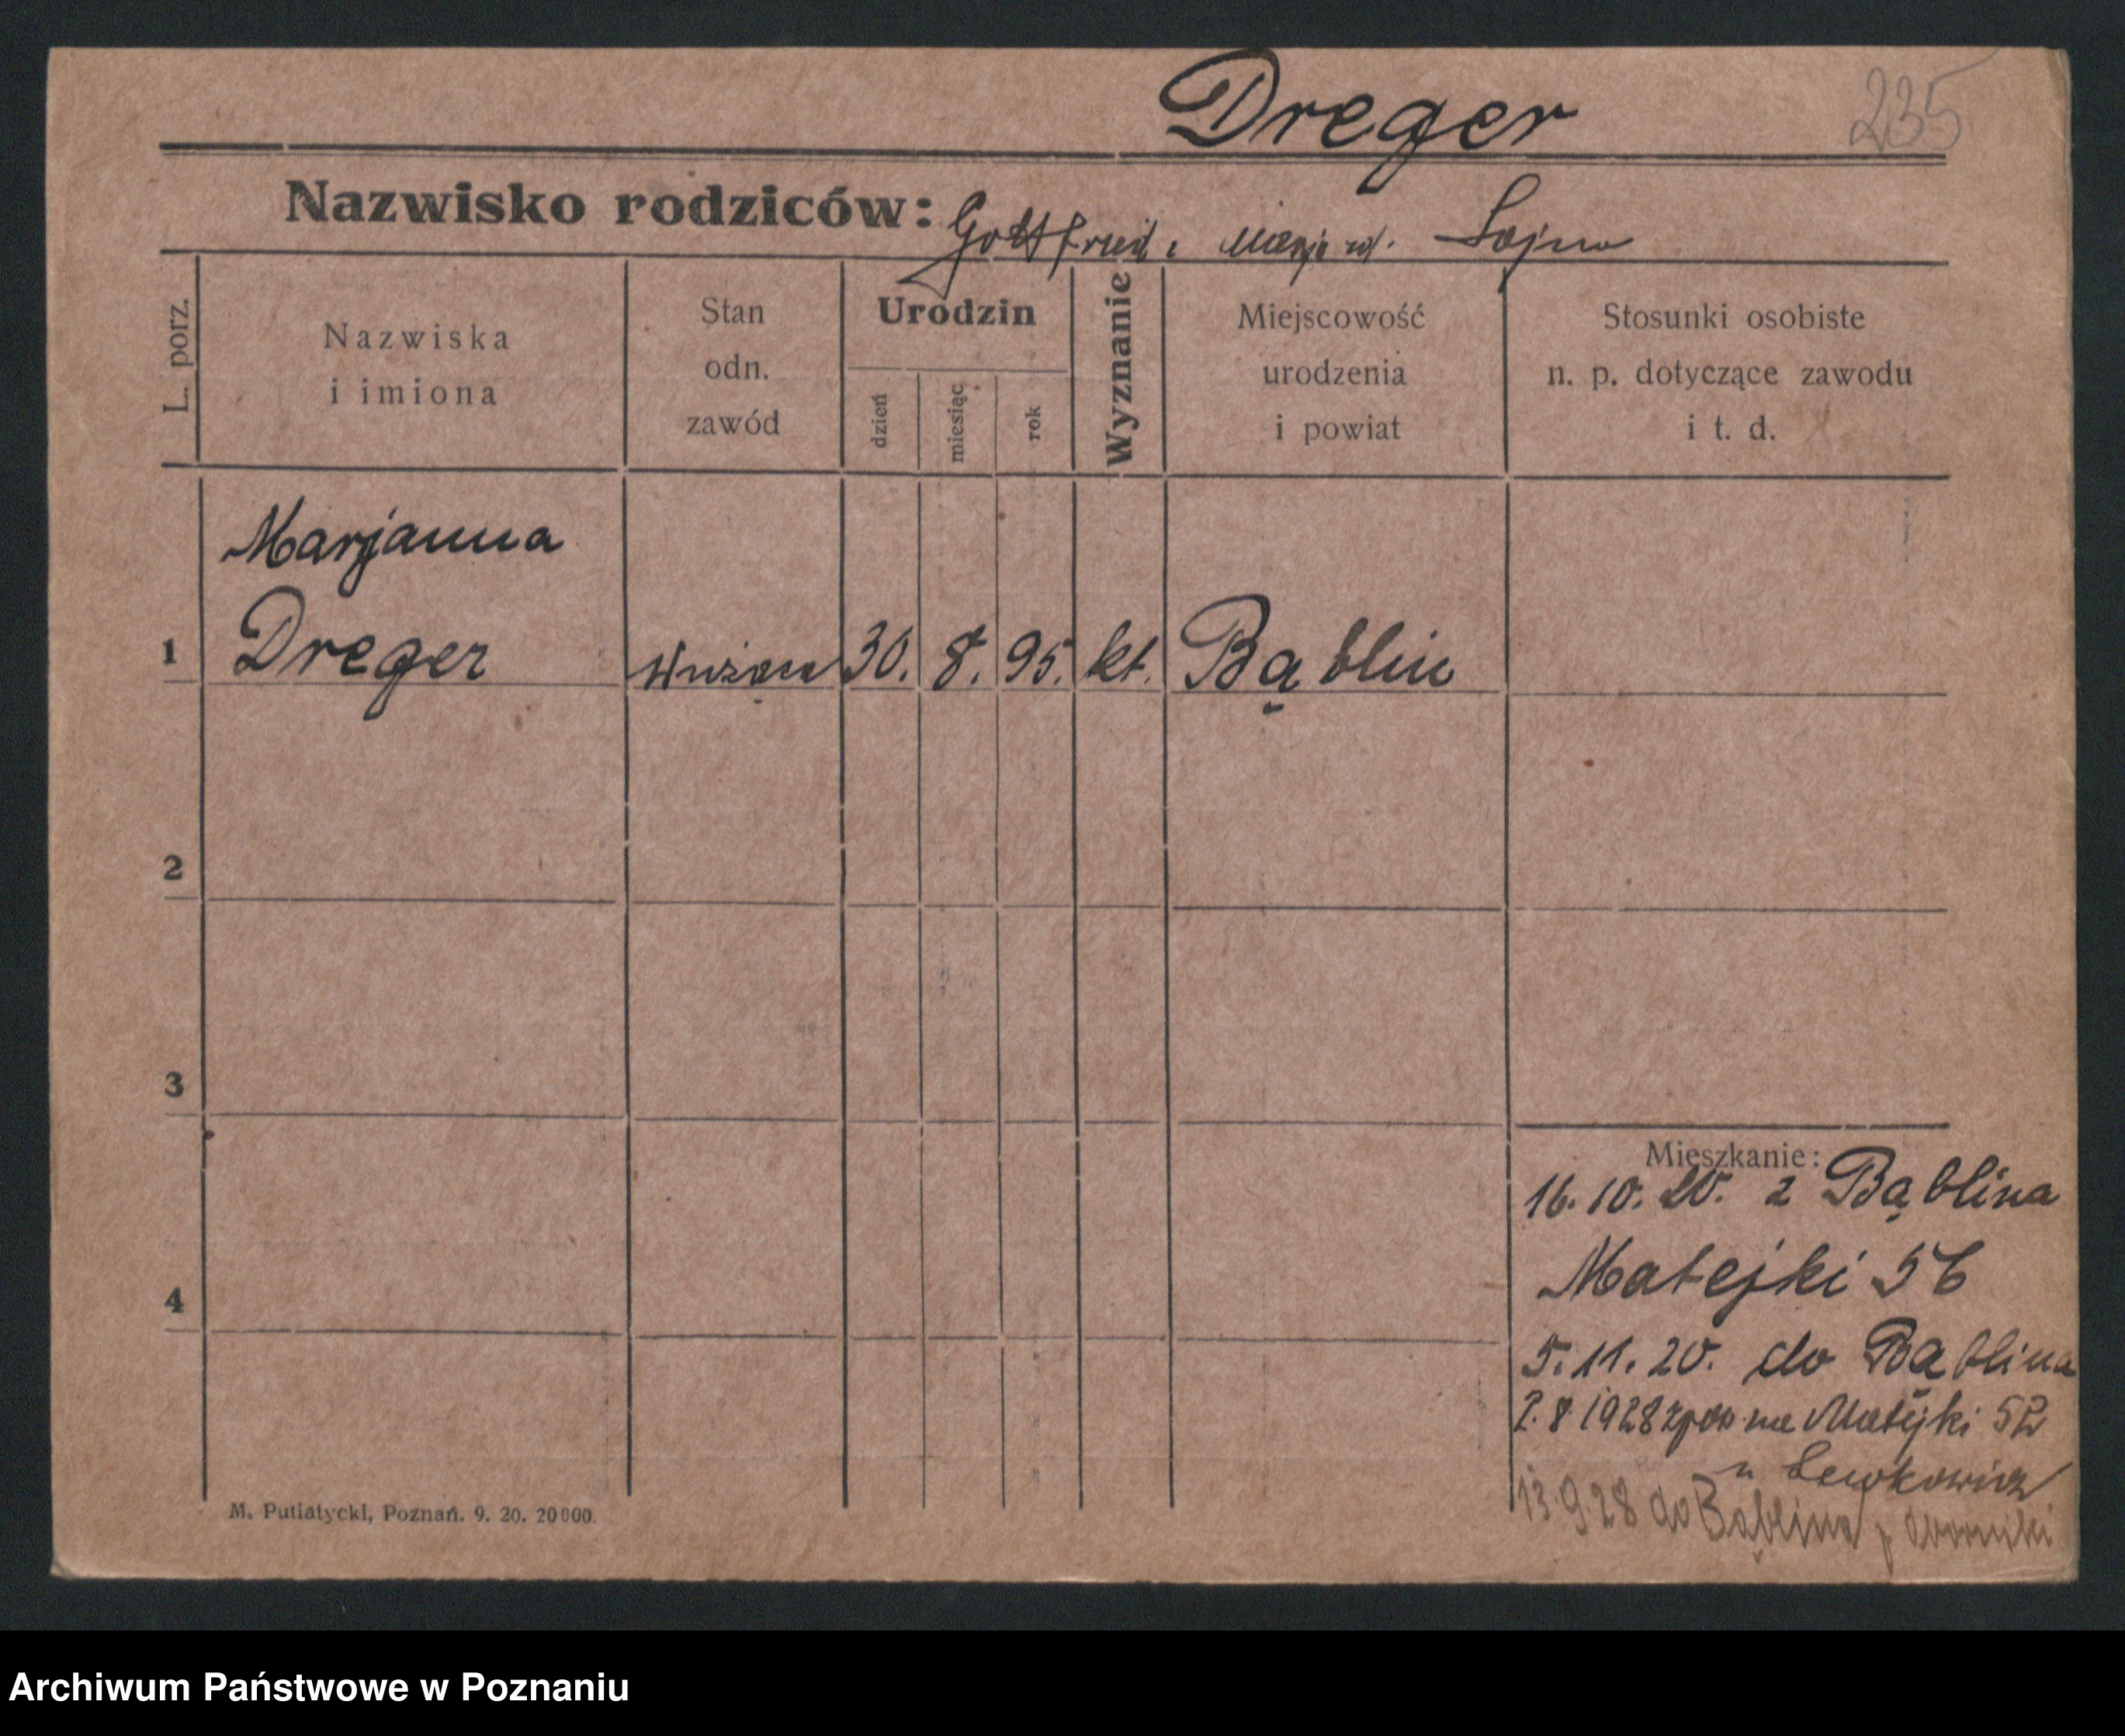 Dreger
235
Nazwisko rodziców: Gottfried i Marja rd.
L. porz.
Nazwiska
i imiona
Stan
odn.
zawód
Urodzin
dzień
miesiąc
rok
Wyznanie
Miejscowość
urodzenia
i powiat
Stosunki osobiste
n. p. dotyczące zawodu
i t. d.
Marjanna
1 Dreger 30. 8. 95. kt. Bąblin
2
3
Mieszkanie:
16. 10. 20. z Bąblina
Matejki 56
4
5. 11. 20. do Bąblina
2. 8. 1928 na Matejki 52
u Lewkowicz
13. 9. 28 do Bąblina p Oborniki
M. Putiatycki, Poznań. 9. 20. 20000.
Archiwum Państwowe w Poznaniu